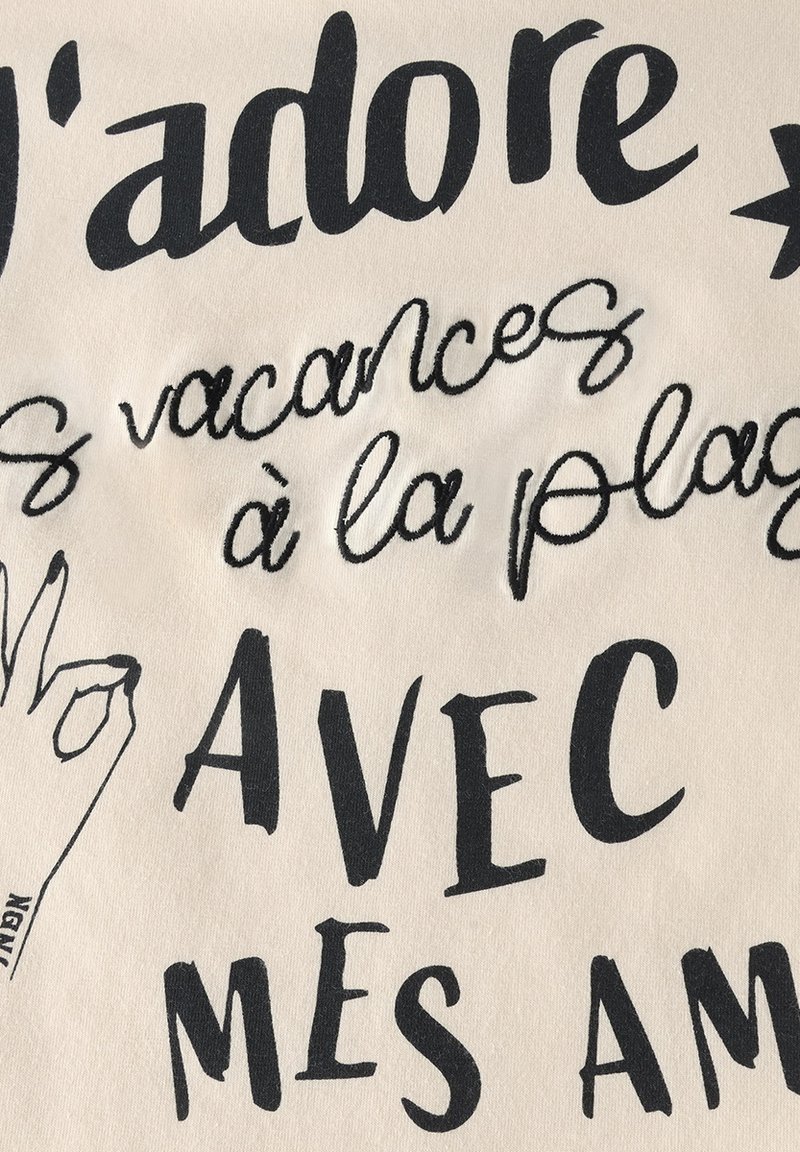 J'adore
s vacances
à la plag
AVEC
MES AM